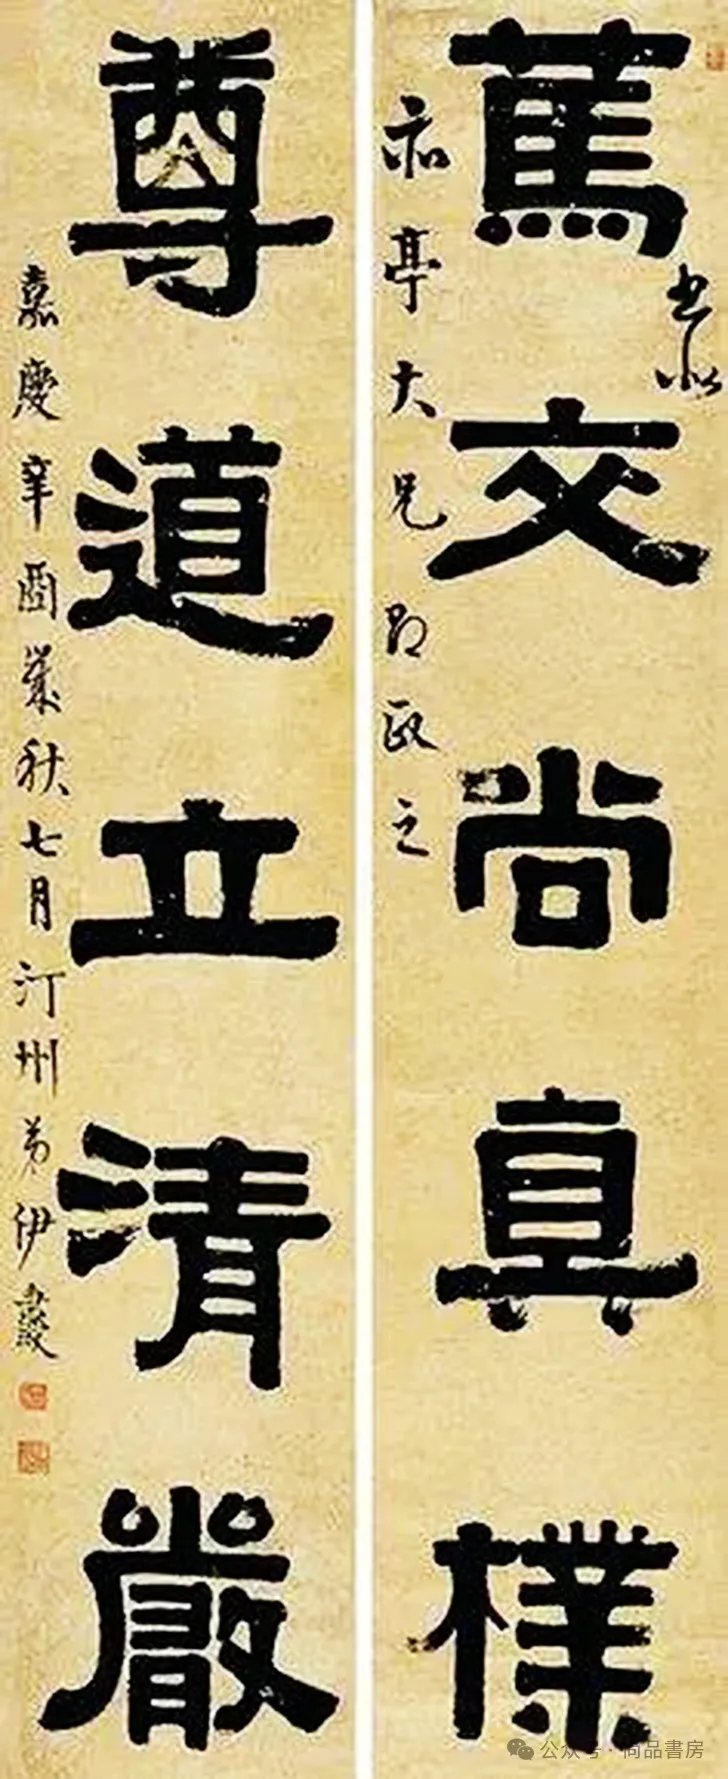 篤交尚真樸
書似
亭大兄即政之
尊道立清嚴
嘉慶辛酉歲秋七月汀州弟伊秉綬
公众号 · 尚品書房